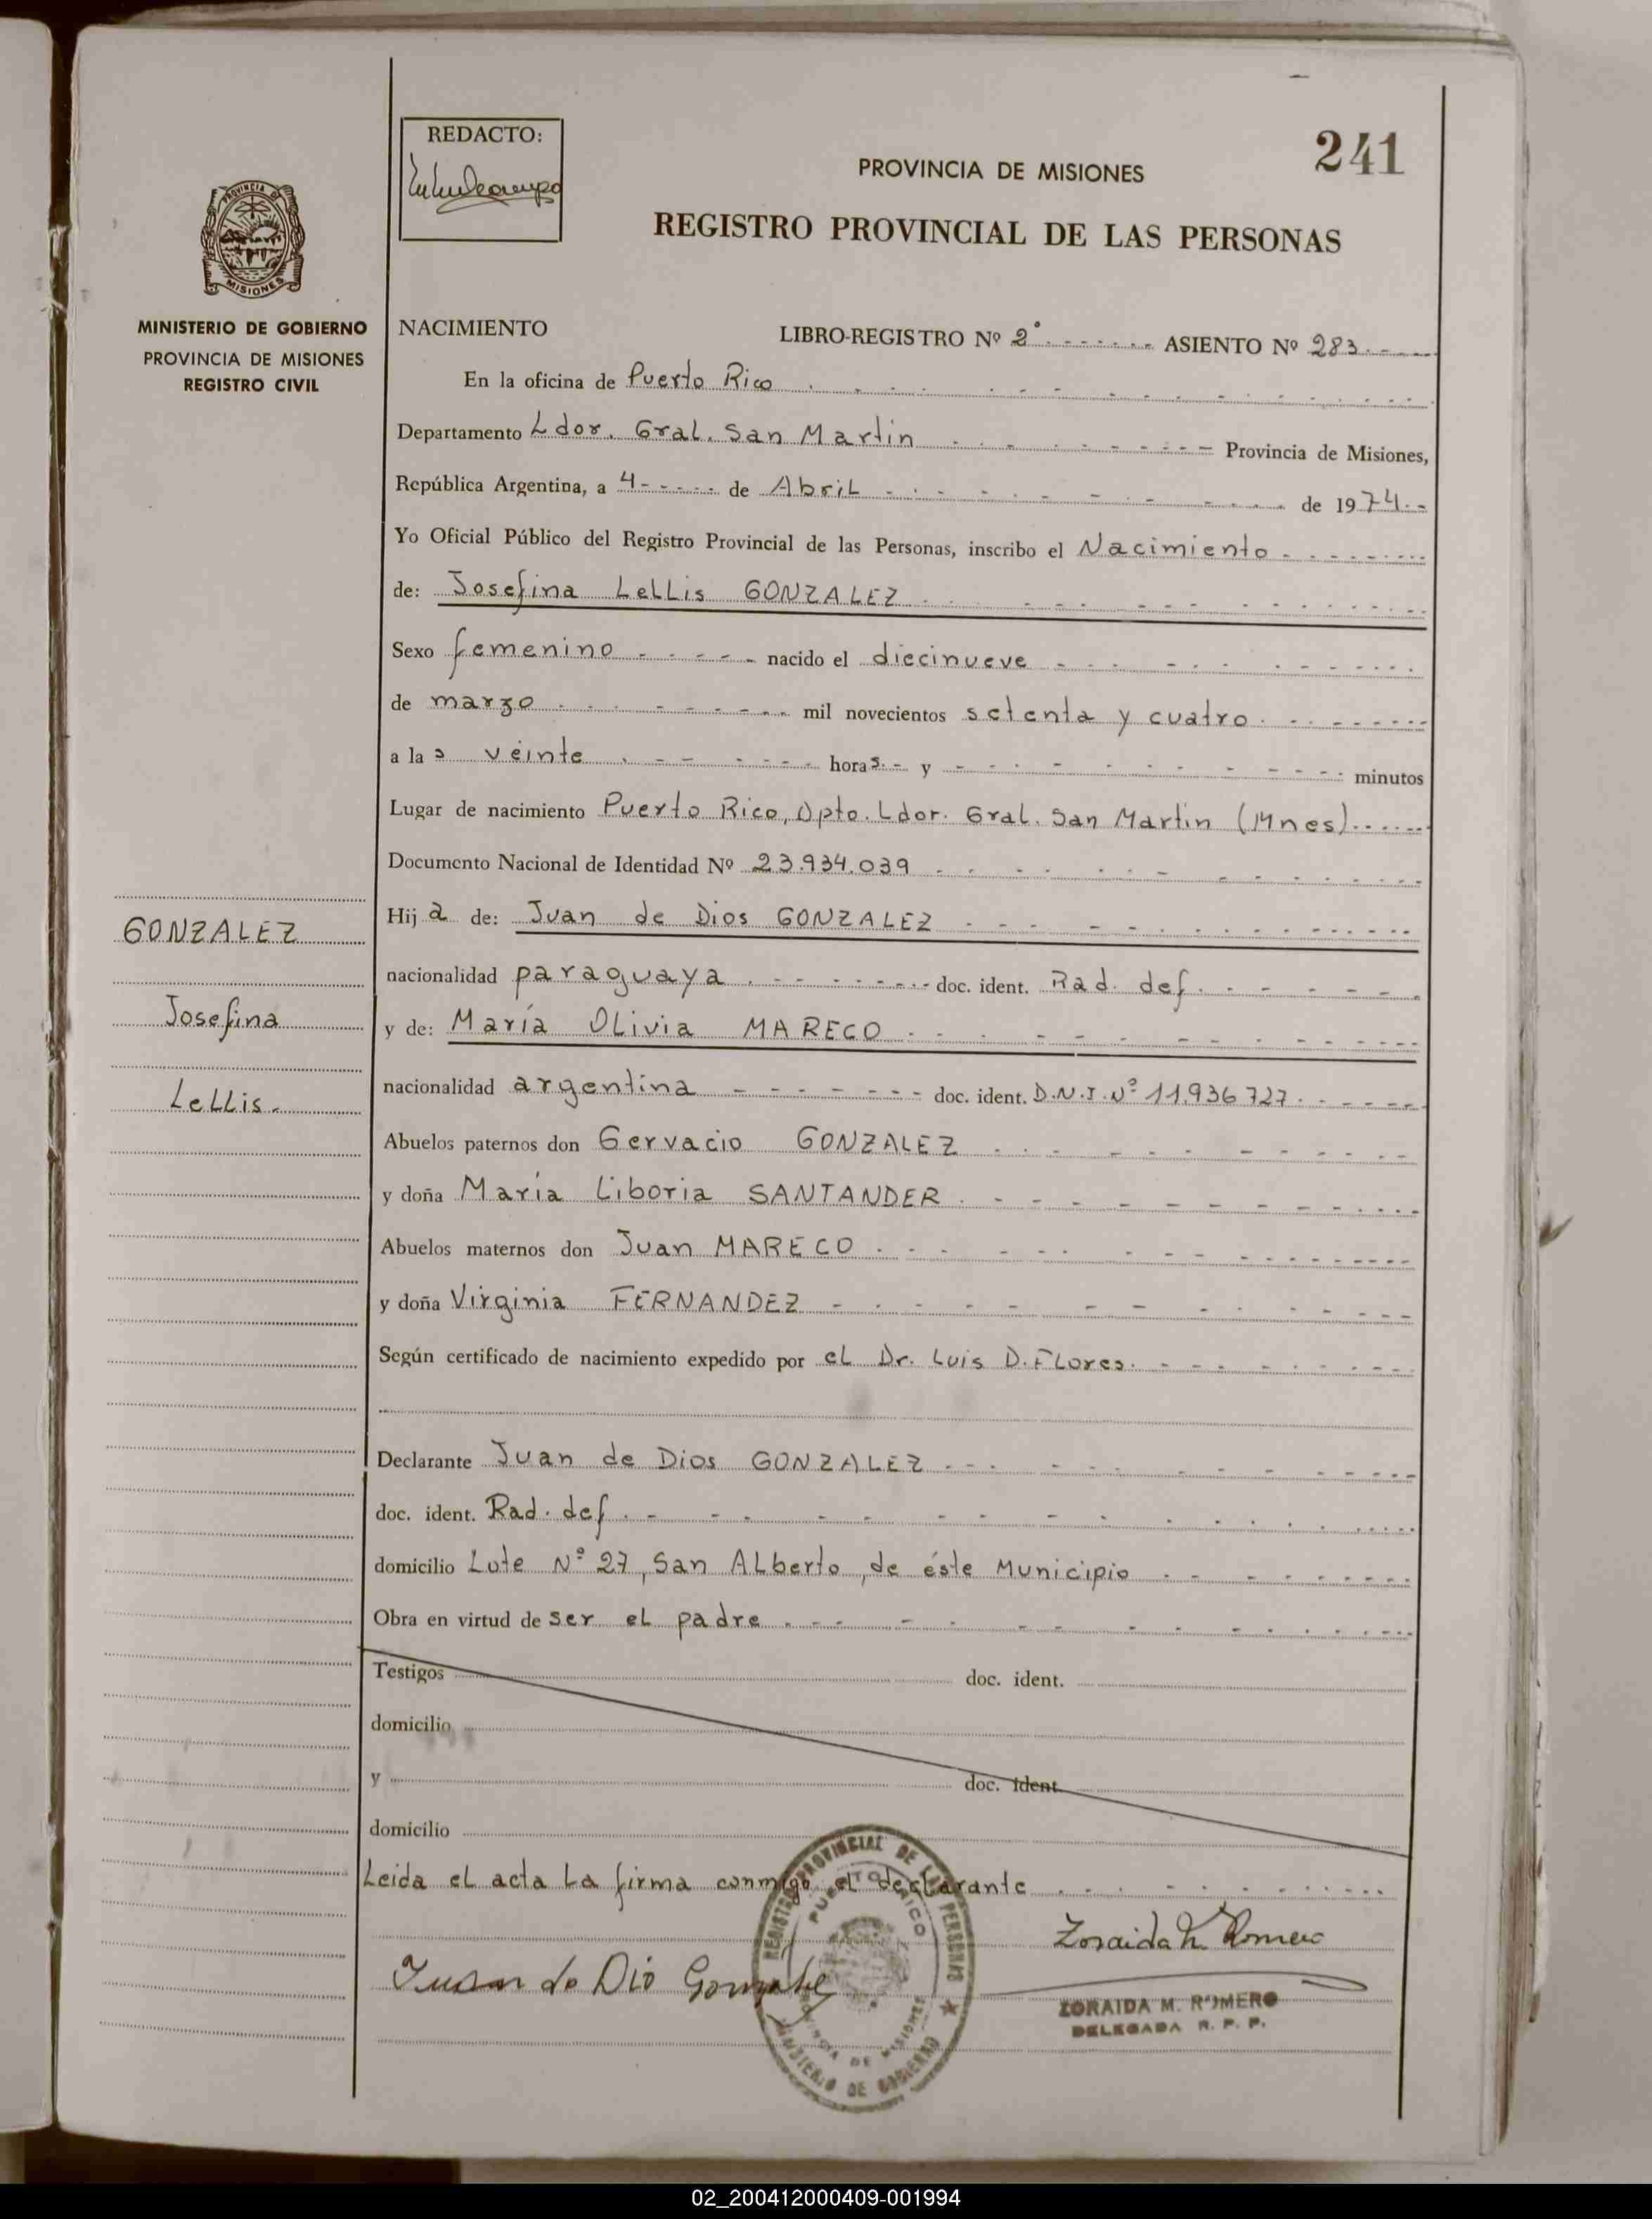 REDACTO:
241
PROVINCIA DE MISIONES
REGISTRO PROVINCIAL DE LAS PERSONAS
PROVINCIA DE
MISIONES
MINISTERIO DE GOBIERNO
PROVINCIA DE MISIONES
REGISTRO CIVIL
NACIMIENTO LIBRO-REGISTRO Nº 2° ASIENTO Nº 283.
En la oficina de Puerto Rico
Departamento Ldor. Gral. San Martin Provincia de Misiones,
República Argentina, a 4 de Abril de 1974
Yo Oficial Público del Registro Provincial de las Personas, inscribo el Nacimiento
de: Josefina Lellis GONZALEZ
Sexo femenino nacido el diecinueve
de marzo mil novecientos setenta y cuatro
a la s veinte horas y minutos
Lugar de nacimiento Puerto Rico, Dpto. Ldor. Gral. San Martin (Mnes)
Documento Nacional de Identidad Nº 23.934.039
Hij a de: Juan de Dios GONZALEZ
nacionalidad paraguaya doc. ident. Rad. def.
y de: María Olivia MARECO
nacionalidad argentina doc. ident. D.N.I. Nº 11.936.727
Abuelos paternos don Gervacio GONZALEZ
y doña María Liboria SANTANDER
Abuelos maternos don Juan MARECO
y doña Virginia FERNANDEZ
Según certificado de nacimiento expedido por el Dr. Luis D. Flores.
Declarante Juan de Dios GONZALEZ
doc. ident. Rad. def.
domicilio Lote Nº 27, San Alberto, de éste Municipio
Obra en virtud de ser el padre
Testigos doc. ident.
domicilio
y doc. ident.
domicilio
Leida el acta la firma conmigo el declarante
GONZALEZ
Josefina
Lellis.
Juan de Dio Gonzalez
Zoraida M. Romero
ZORAIDA M. ROMERO
DELEGADA R. P. P.
REGISTRO PROVINCIAL DE LAS PERSONAS
PUERTO RICO
PROVINCIA DE MISIONES
MINISTERIO DE GOBIERNO
02_200412000409-001994